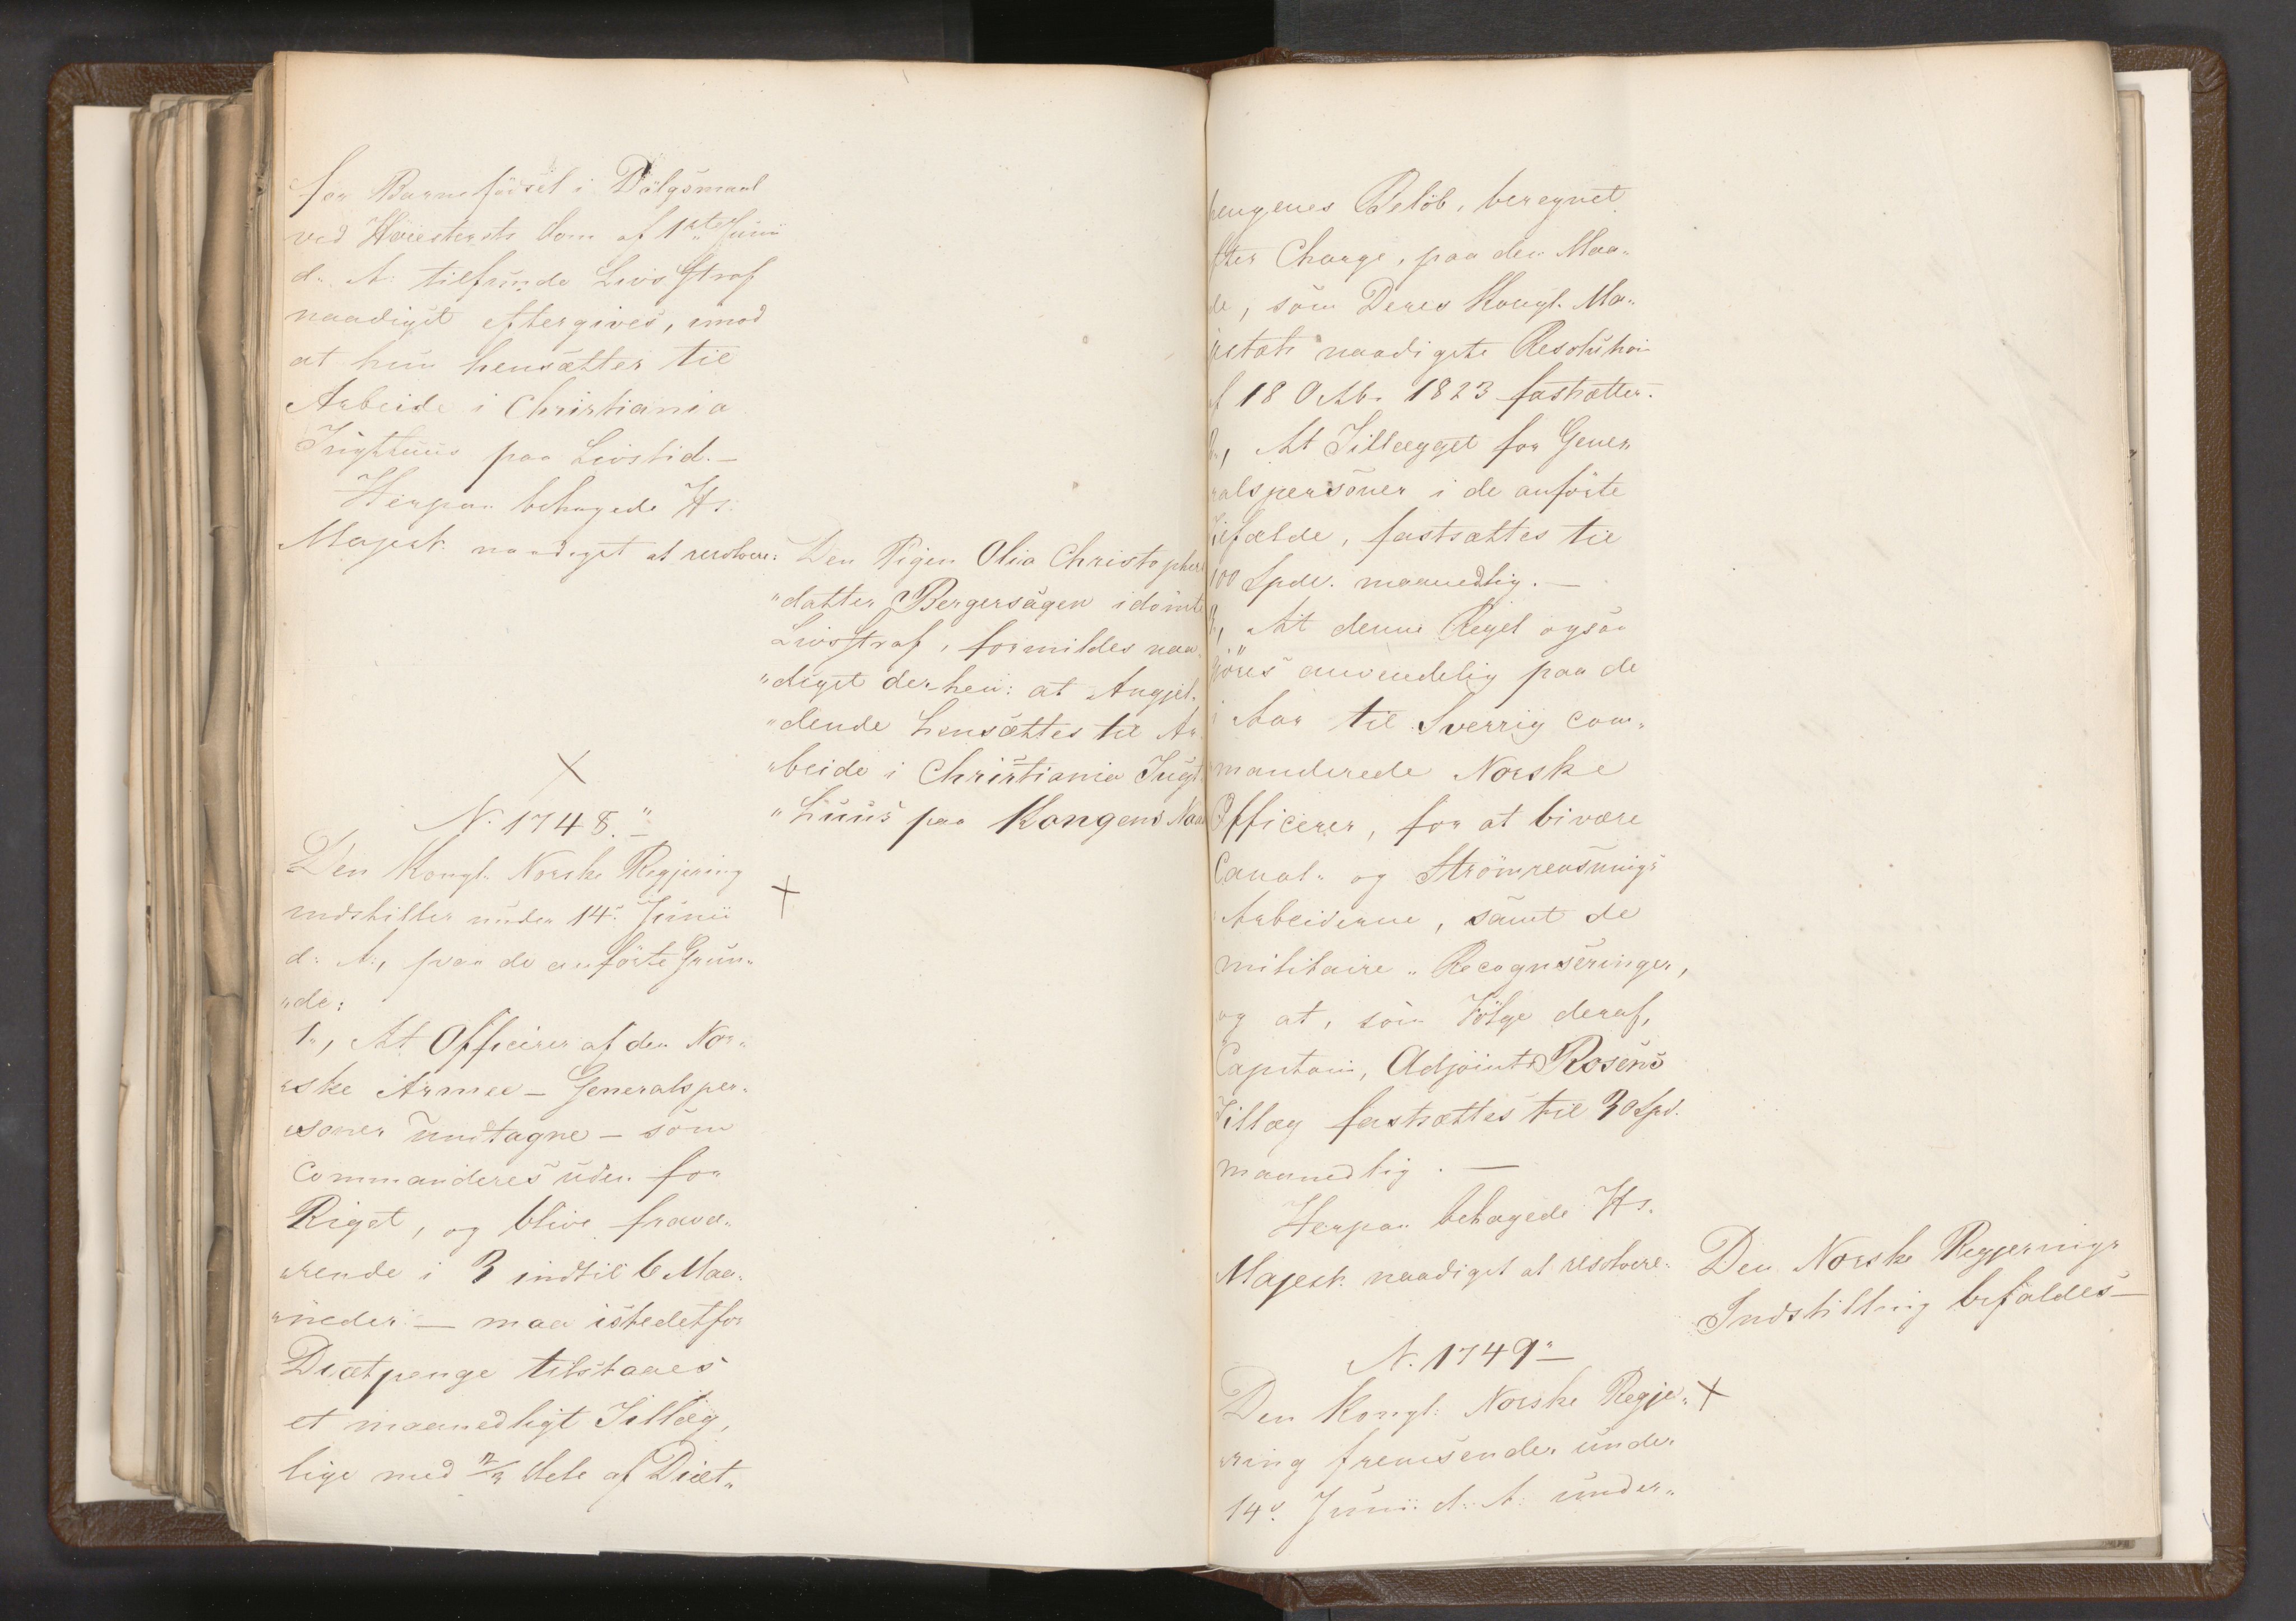 for Barnefödsel i Dölgsmaal
ved Höiesterets Dom af 1ste Junii
d. A. tilfundne Livsstraf
naadigst eftergives, imod
at hun hensættes til
Arbeide i Christiania
Tugthuus paa Livstid.—
Herpaa behagede Hs.
Majest. naadigst at resolvere:
Den Pigen Olia Christophers
"datter Bergersagen idömte
Livsstraf, formildes naa-
"digst derhen: at Angjel-
"dende hensættes til Ar-
"beide i Christiania Tugt
"huus paa Kongens Naa
N. 1748."
Den Kongl. Norske Regjering
indstiller under 14. Junii
d. A., paa de anförte Grun-
"de:
1", At Officerer af den Nor-
"ske Armee — Generalsper-
"soner undtagne — som
commanderes uden for
Riget, og blive fravæ-
"rende i 3 indtil 6 Maa-
"neder — maa istedetfor
Diætpenge tilstaaes
et maanedligt Tillæg,
lige med 2/3 dele af Diæt-
pengenes Belöb, beregnet
fter Charge, paa den Maa-
de, som Deres Kongl. Ma-
jestæts naadigste Resolution
af 18 Octbr. 1823 fastsætter.
2, At Tillægget for Gener-
ralspersoner i de anförte
Tilfælde, fastsættes til
100 Spdl. maanedlig.—
3, At denne Regel ogsaa
gjöres anvendelig paa de
i Aar til Sverrig com-
manderede Norske
Officerer, for at bivære
Canal- og Strömrensnings
Arbeiderne, samt de
militaire Recognsceringer,
og at, som Fölge deraf,
Capitain, Adjoint Rosens
Tillæg fastsættes til 30 Spd.
maanedlig.—
Herpaa behagede Hs.
Majest. naadigst at resolvere:
Den Norske Regjerings
Indstilling bifaldes—
N. 1749"—
Den Kongl. Norske Regje-
"ring fremsender under
14. Junii d. A. under-